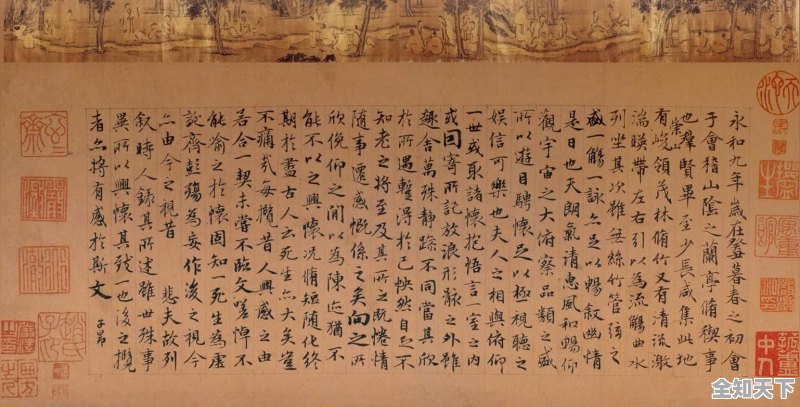 永和九年歲在癸暮春之初會
于會稽山陰之蘭亭脩稧事
也群賢畢至少長咸集此地
有崇山峻領茂林脩竹又有清流激
湍暎帶左右引以為流觴曲水
列坐其次雖無絲竹管弦之
盛一觴一詠亦足以暢敘幽情
是日也天朗氣清惠風和暢仰
觀宇宙之大俯察品類之盛
所以遊目騁懷足以極視聽之
娛信可樂也夫人之相與俯仰
一世或取諸懷抱悟言一室之內
或因寄所託放浪形骸之外雖
趣舍萬殊靜躁不同當其欣
於所遇蹔得於己怏然自足不
知老之將至及其所之既惓情
隨事遷感慨係之矣向之所
欣俛仰之間以為陳迹猶不
能不以之興懷況脩短隨化終
期於盡古人云死生亦大矣豈
不痛哉每攬昔人興感之由
若合一契未嘗不臨文嗟悼不
能喻之於懷固知一死生為虛
誕齊彭殤為妄作後之視今
亦由今之視昔 悲夫故列
敘時人錄其所述雖世殊事
異所以興懷其致一也後之攬
者亦將有感於斯文
子昂
全知天下